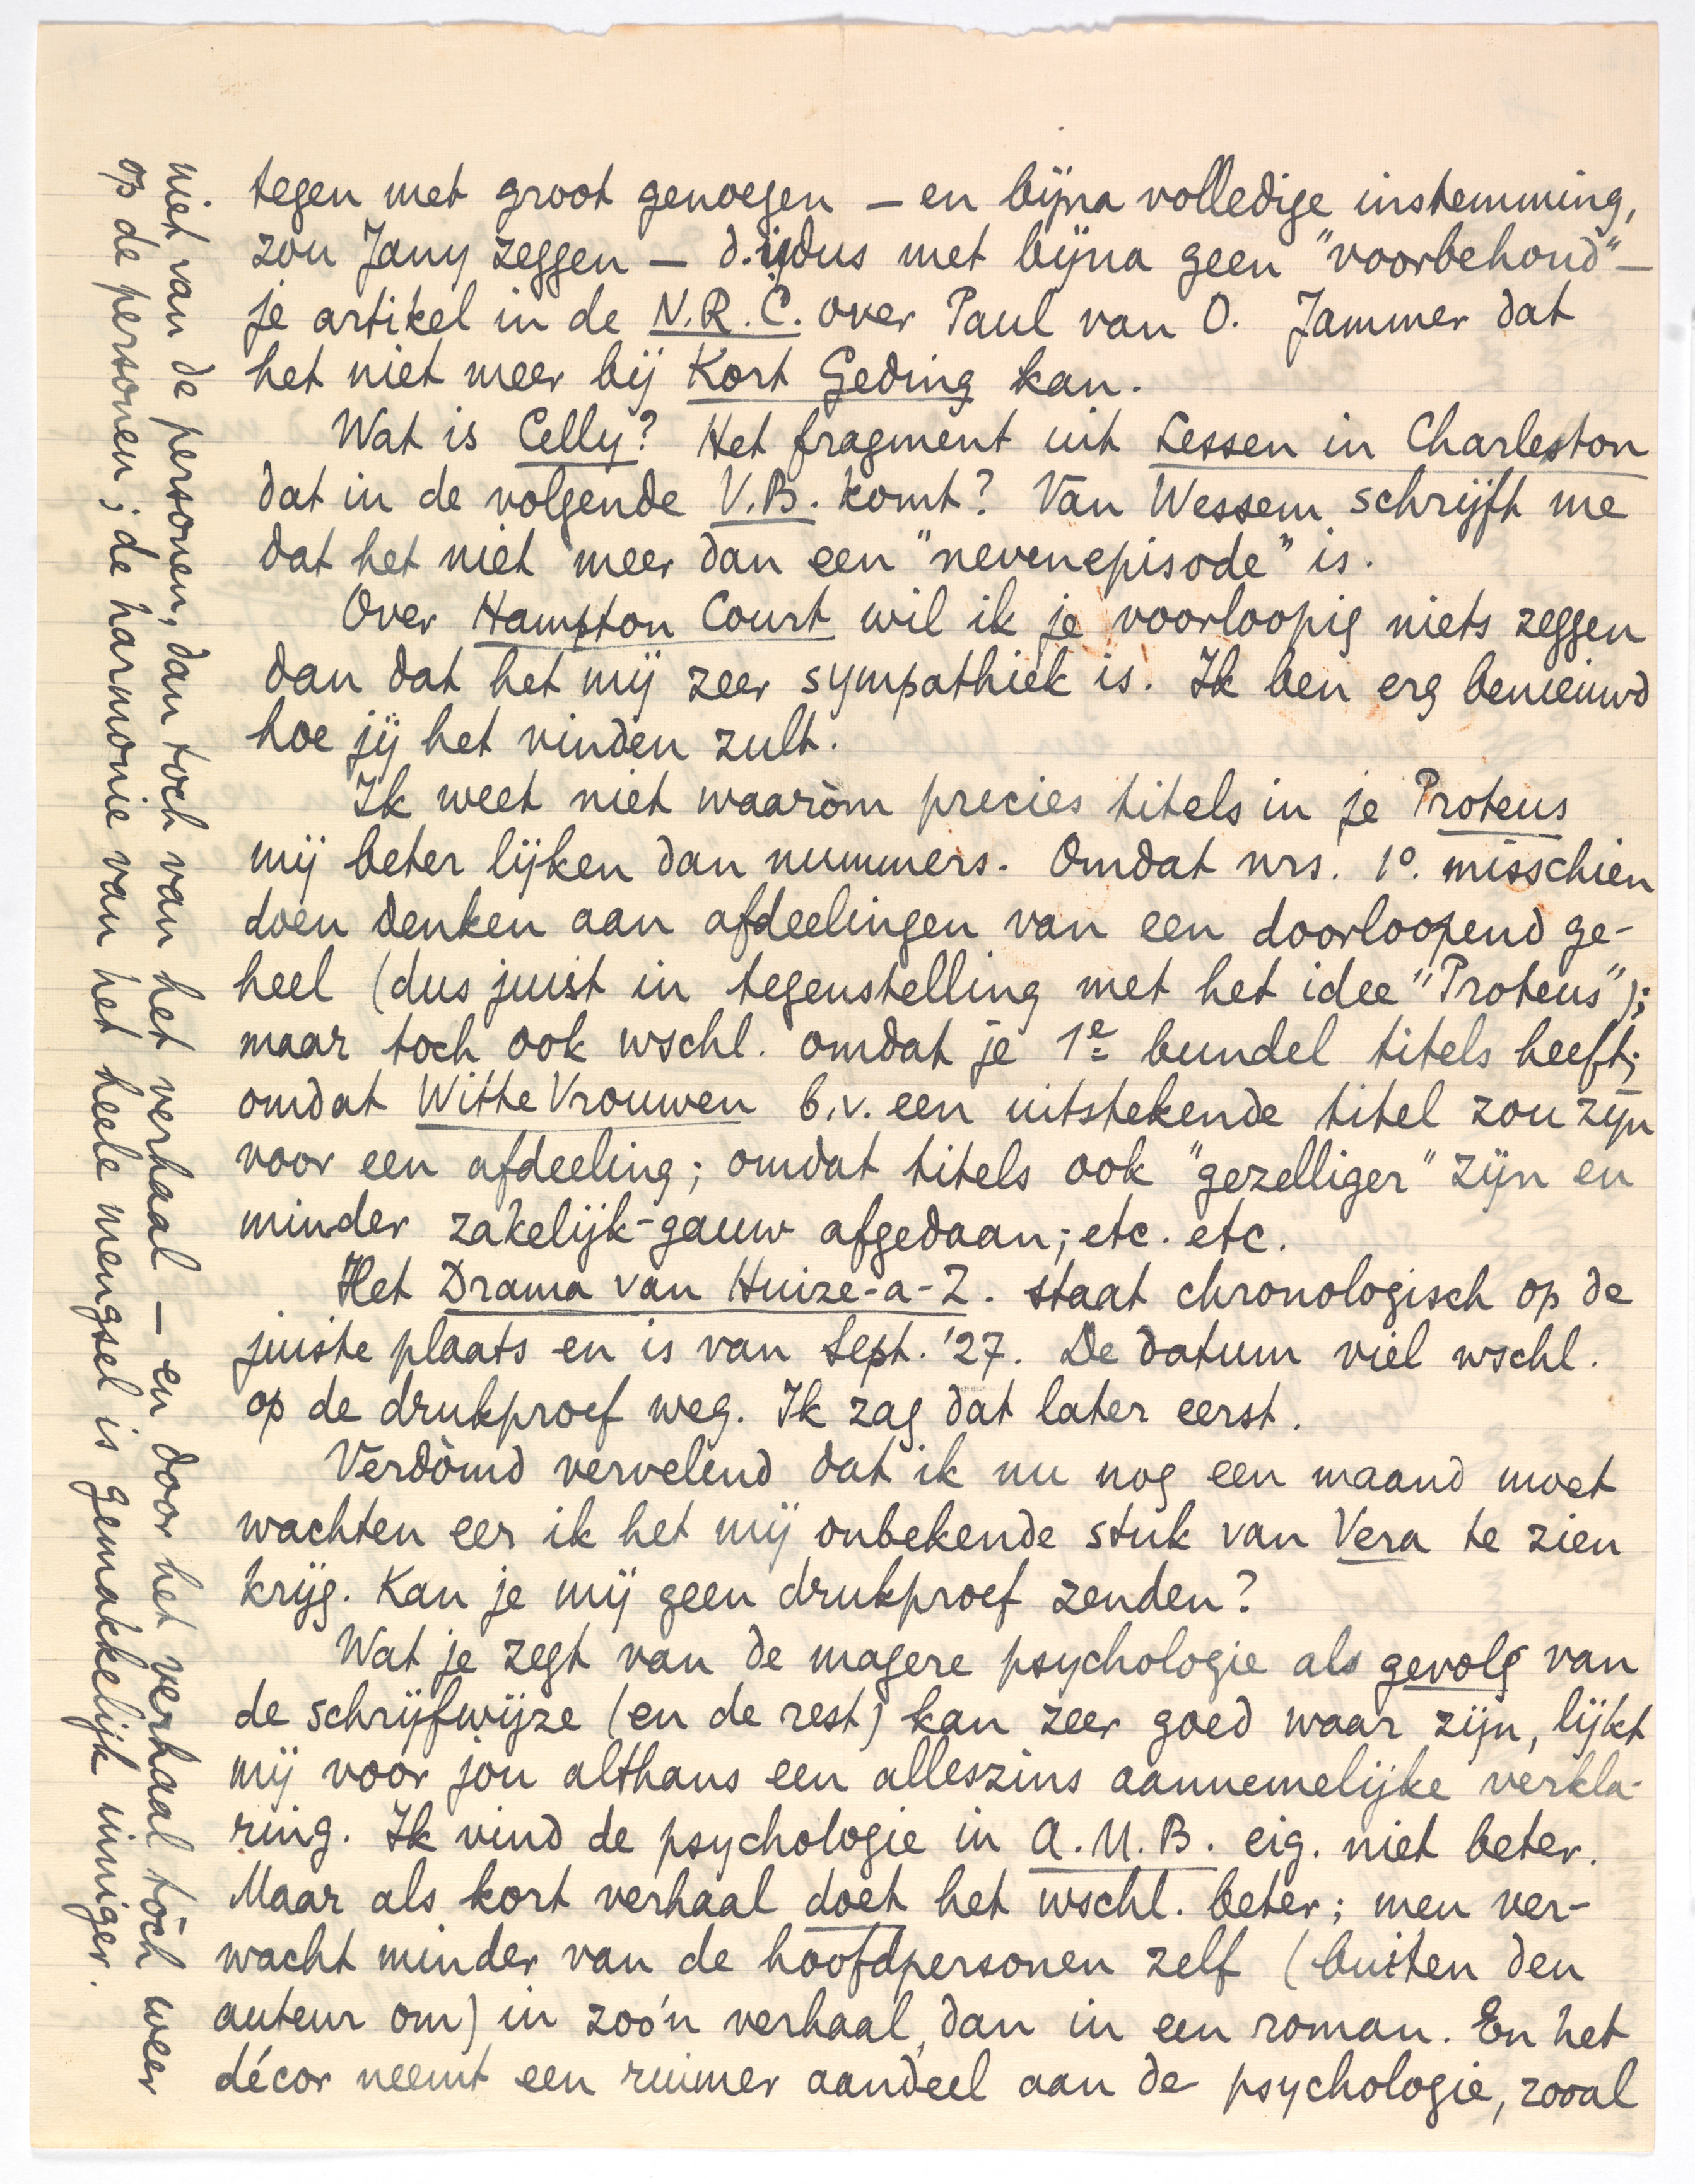 tegen met groot genoegen – en bijna volledige instemming,
zou Jany zeggen – d.i. dus met bijna geen "voorbehoud" –
je artikel in de N.R.C. over Paul van O. Jammer dat
het niet meer bij Kort Geding kan.
Wat is Celly? Het fragment uit Lessen in Charleston
dat in de volgende V.B. komt? Van Wessem schrijft me
dat het niet meer dan een "nevenepisode" is.
Over Hampton Court wil ik je voorloopig niets zeggen
dan dat het mij zeer sympathiek is. Ik ben erg benieuwd
hoe jij het vinden zult.
Ik weet niet waaròm precies titels in je Proteus
mij beter lijken dan nummers. Omdat nrs. 1º. misschien
doen denken aan afdeelingen van een doorloopend ge-
heel (dus juist in tegenstelling met het idee "Proteus");
maar toch ook wschl. omdat je 1e bundel titels heeft;
omdat Witte Vrouwen b.v. een uitstekende titel zou zijn
voor een afdeeling; omdat titels ook "gezelliger" zijn en
minder zakelijk-gauw afgedaan; etc. etc.
Het Drama van Huize-a-Z. staat chronologisch op de
juiste plaats en is van Sept. '27. De datum viel wschl.
op de drukproef weg. Ik zag dat later eerst.
Verdòmd vervelend dat ik nu nog een maand moet
wachten eer ik het mij onbekende stuk van Vera te zien
krijg. Kan je mij geen drukproef zenden?
Wat je zegt van de magere psychologie als gevolg van
de schrijfwijze (en de rest) kan zeer goed waar zijn, lijkt
mij voor jou althans een alleszins aannemelijke verkla-
ring. Ik vind de psychologie in A.M.B. eig. niet beter.
Maar als kort verhaal doet het wschl. beter; men ver-
wacht minder van de hoofdpersonen zelf (buiten den
auteur om) in zoo'n verhaal, dan in een roman. En het
décor neemt een ruimer aandeel aan de psychologie, zooal
niet van de personen, dan toch van het verhaal – en door het verhaal tòch weer
op de personen; de harmonie van het heele mengsel is gemakkelijk inniger.